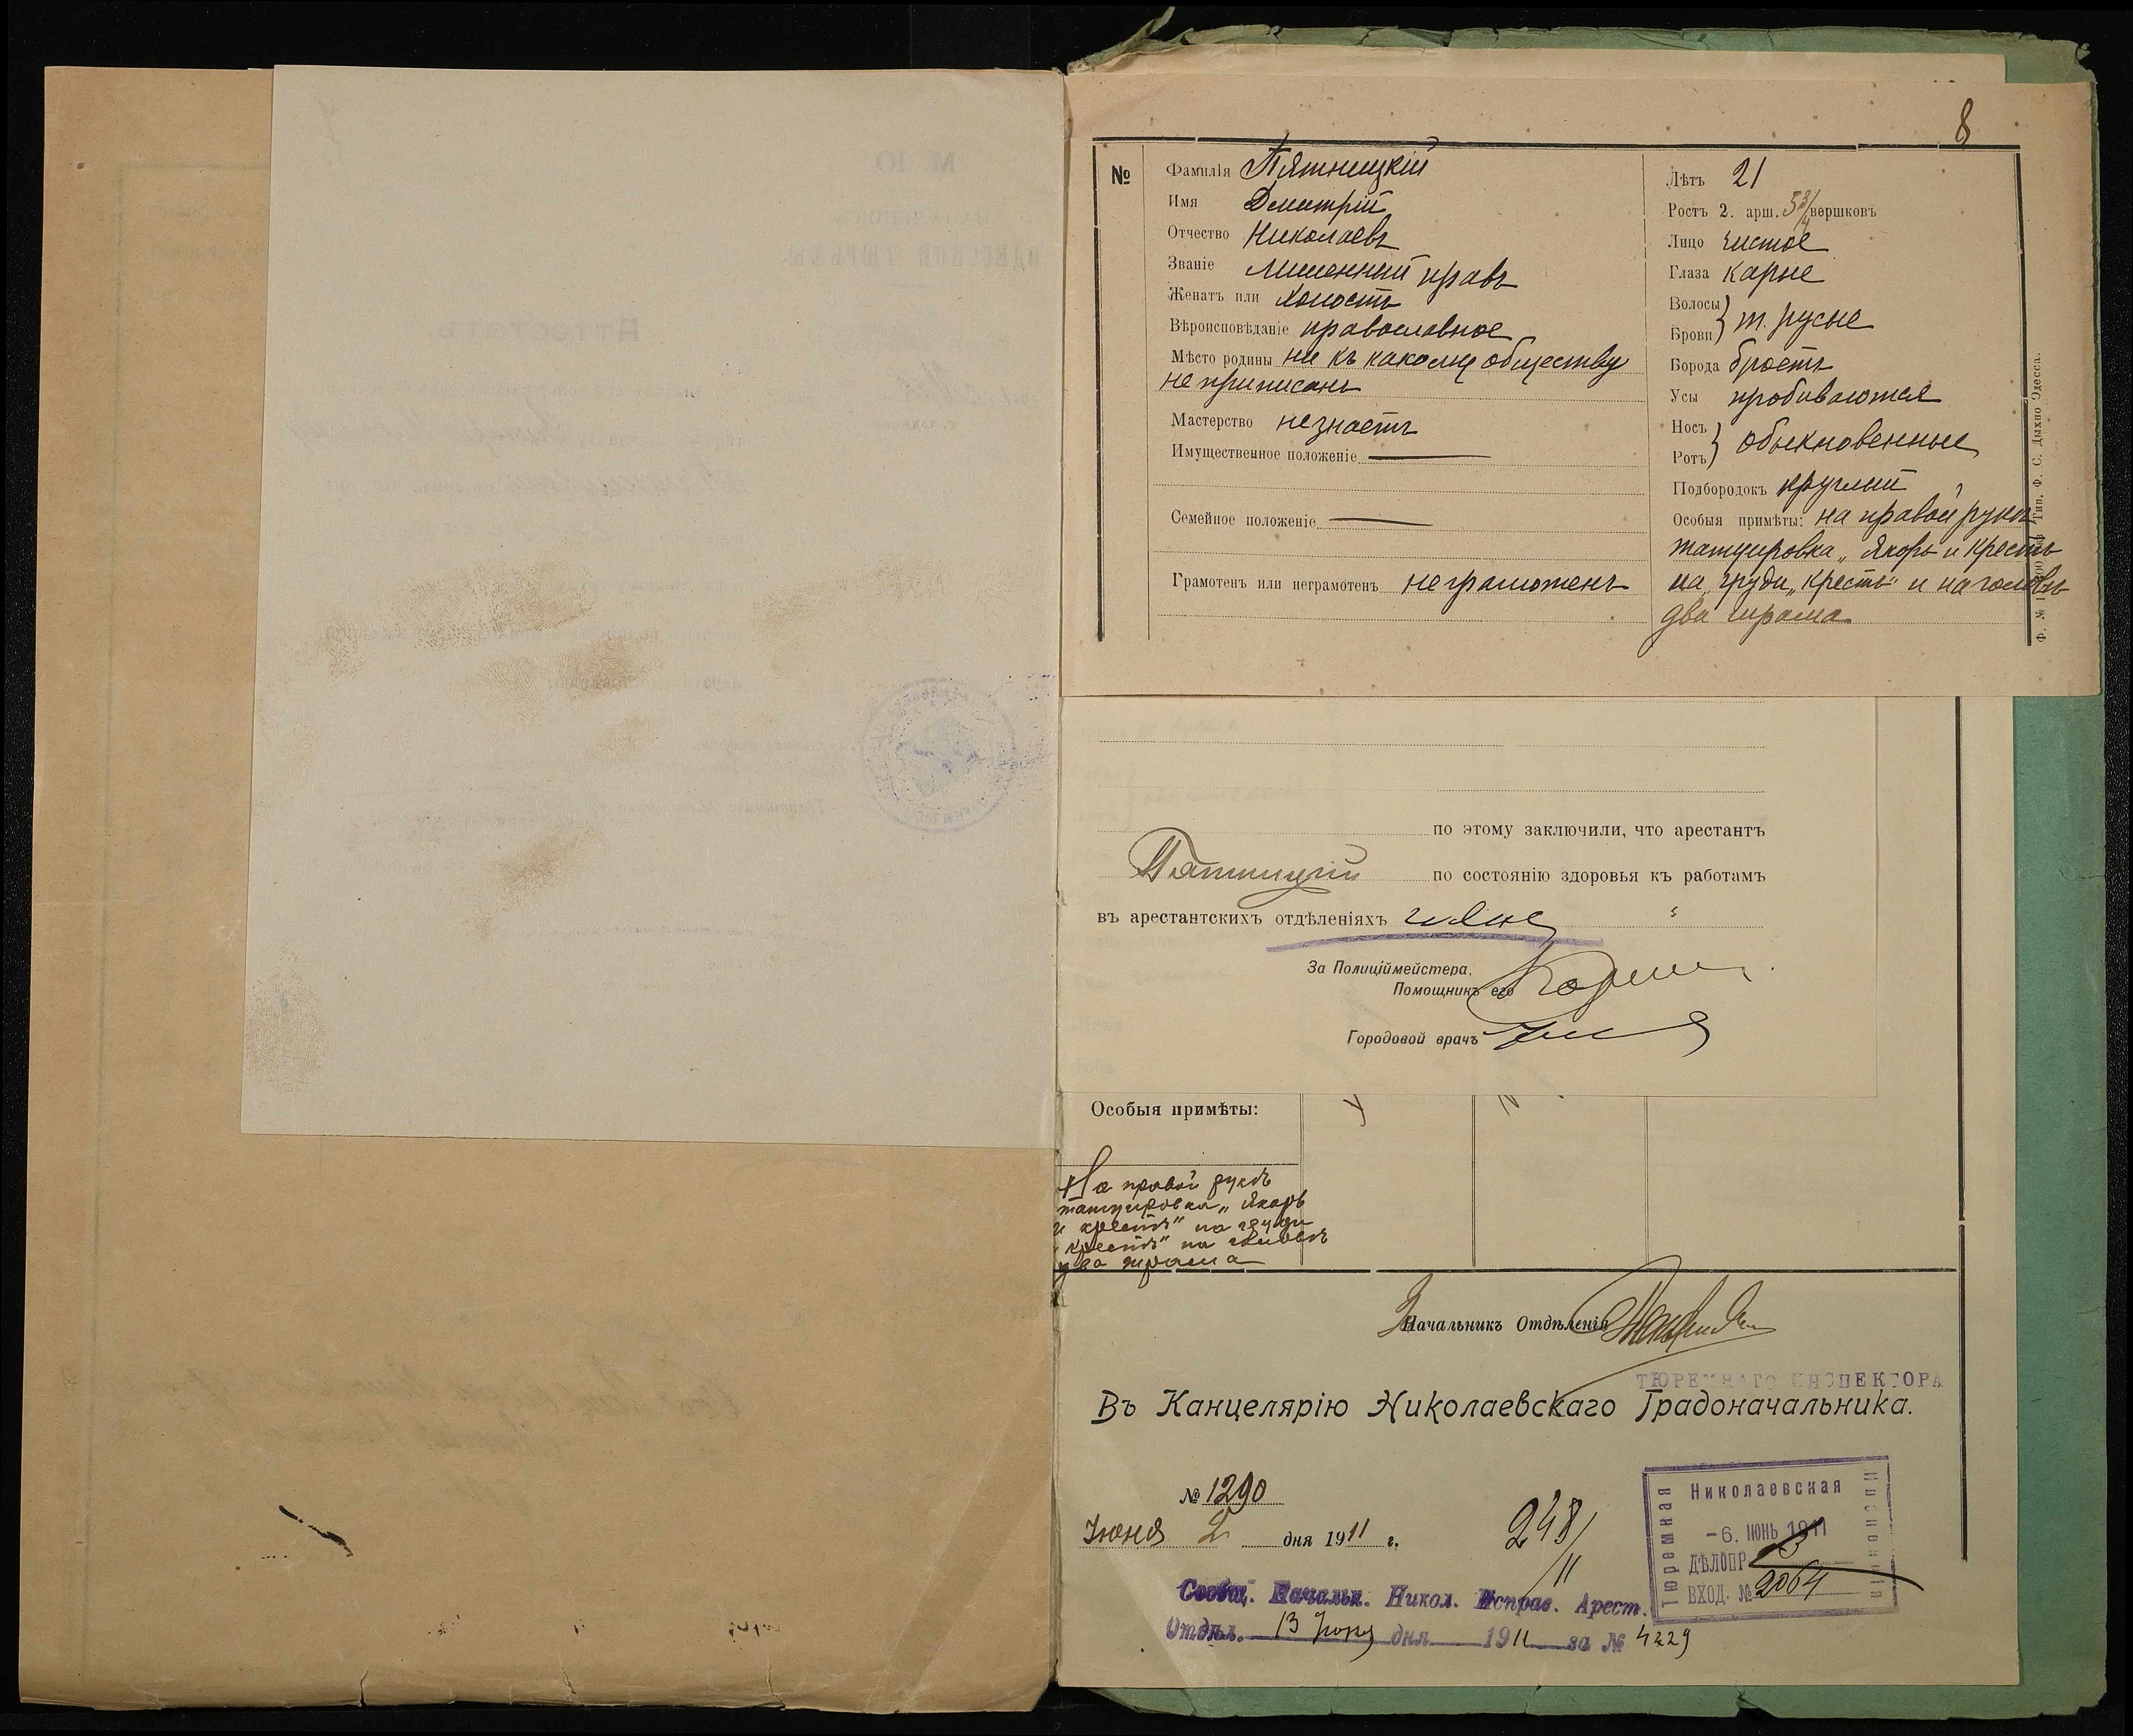 8
№
Фамилія Пятницкій
Имя Дмитрій
Отчество Николаевъ
Званіе лишенный правъ
Женатъ или холостъ
Вѣроисповѣданіе православное
Мѣсто родины ни къ какому обществу
не приписанъ
Мастерство не знаетъ
Имущественное положеніе
Семейное положеніе
Грамотенъ или неграмотенъ неграмотенъ
Лѣтъ 21
Ростъ 2. арш. 5 3/4 вершковъ
Лицо чистое
Глаза карые
Волосы
Брови } т. русые
Борода брѣетъ
Усы пробиваются
Носъ
Ротъ } обыкновенные
Подбородокъ круглый
Особыя примѣты: на правой рукѣ
татуировка „Якорь и крестъ
на груди „крестъ" и на головѣ
два шрама
Тип. Ф. С. Дыхно Одесса.
по этому заключили, что арестантъ
Пятницкій по состоянію здоровья къ работамъ
въ арестантскихъ отдѣленіяхъ годенъ
За Полиціймейстера,
Помощникъ его
Городовой врачъ
Особыя примѣты:
На правой рукѣ
татуировка „Якорь
и крестъ" на груди
„крестъ" на головѣ
два шрама
Начальникъ Отдѣленія
ТЮРЕМНАГО ИНСПЕКТОРА
Въ Канцелярію Николаевскаго Градоначальника.
№ 1290
Іюня 2 дня 1911 г.
248/11
Николаевская
Тюремная
Инспекція
-6. ІЮНЬ 1911
ДѢЛОПР. 3
ВХОД. № 2064
Сообщ. Начальн. Никол. Исправ. Арест.
Отдѣл. 13 Іюня дня 1911 за № 4229